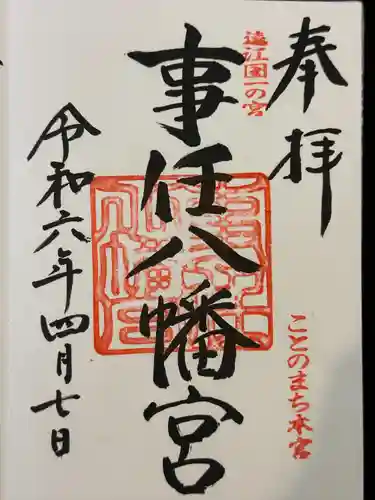 奉拝
遠江国一の宮
ことのまち本宮
事任八幡宮
令和六年四月七日